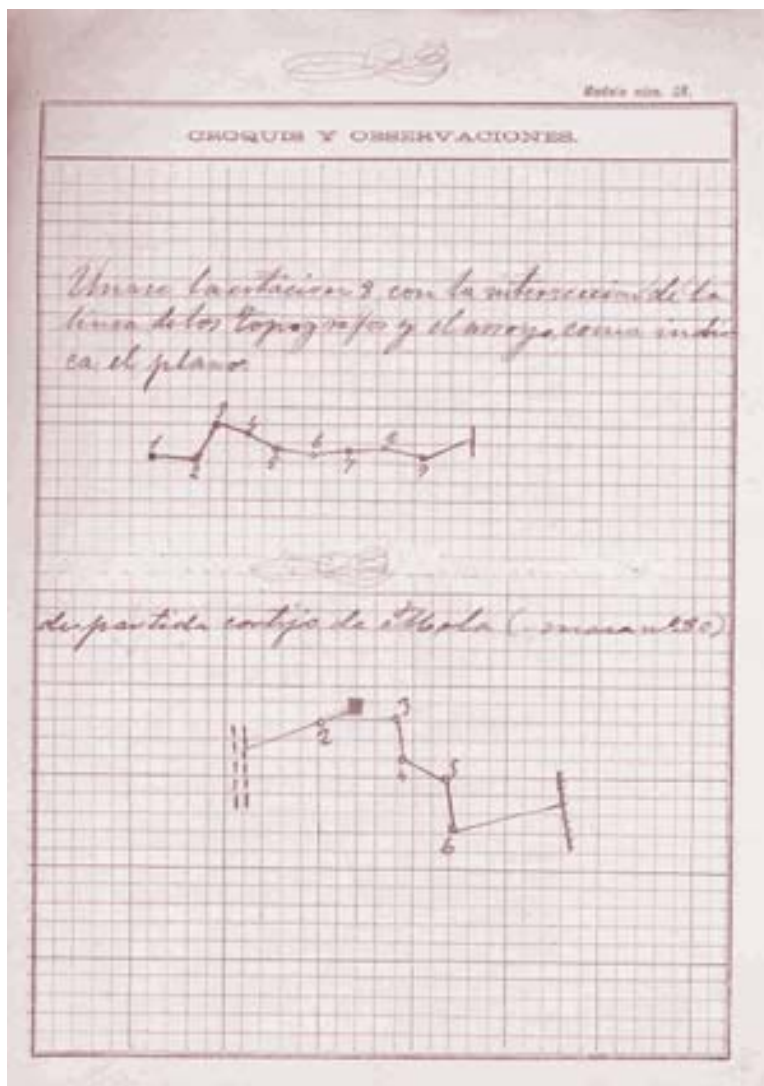 Modelo núm. 18.
CROQUIS Y OBSERVACIONES.
Unase la estacion 9 con la interseccion de la
linea de los topografos y el arroyo, como indi
ca el plano
3
1 4 6 8
2 5 7 9
de partida cortijo de
3
2
4 5
6